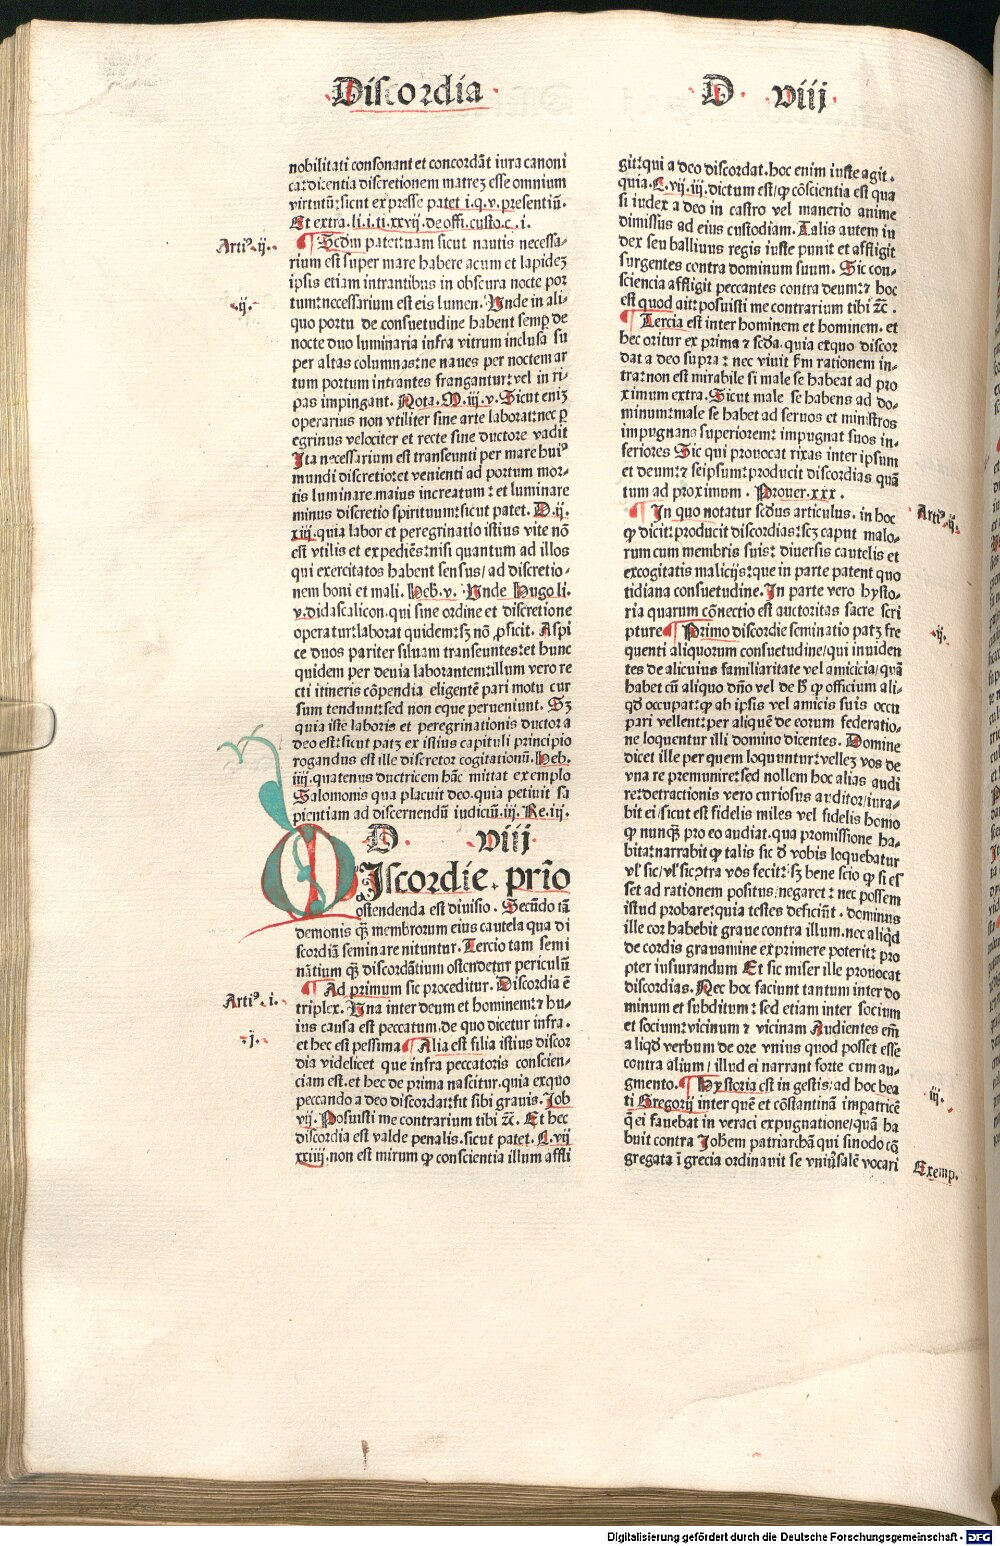 Discordia D viij
nobilitati consonant et concordāt iura canoni
ca: dicentia discretionem matreꝫ esse omnium
virtutū: sicut expresse patet i.q.v. presentiū.
Et extra.li.i.ti.xxvij.de offi.custo.c.i.
Artiꝰ.ij.
¶ Scd̄m patet: nam sicut nautis necessa⸗
rium est super mare habere acum et lapideꝫ
ipsis etiam intrantibus in obscura nocte por
.ij.
tum: necessarium est eis lumen. Unde in ali⸗
quo portu de consuetudine habent semꝑ de
nocte duo luminaria infra vitrum inclusa su
per altas columnas: ne naues per noctem ar
tum portum intrantes frangantur: vel in ri⸗
pas impingant. Nota.M.iij.v. Sicut eniꝫ
operarius non vtiliter sine arte laborat: nec ꝑ
egrinus velociter et recte sine ductore vadit
Ita necessarium est transeunti per mare huiꝰ
mundi discretio: et venienti ad portum mor⸗
tis luminare maius increatum: et luminare
minus discretio spirituum: sicut patet. D.ij.
xiij. quia labor et peregrinatio istius vite nō
est vtilis et expediēs: nisi quantum ad illos
qui exercitatos habent sensus/ad discretio⸗
nem boni et mali. Heb.v. Unde Hugo li.
v. didascalicon. qui sine ordine et discretione
operatur: laborat quidem: sꝫ nō ꝓficit. Aspi
ce duos pariter siluam transeuntes: et hunc
quidem per deuia laborantem: illum vero re
cti itineris cōpendia eligentē pari motu cur
sum tendunt: sed non eque perueniunt. Sꝫ
quia iste laboris et peregrinationis ductor a
deo est: sicut patꝫ ex istius capituli principio
rogandus est ille discretor cogitationū. Heb.
iiij. quatenus ductricem hāc mittat exemplo
Salomonis qua placuit deo. quia petiuit sa
pientiam ad discernendū iudiciū.iij. Re.iij.
D viij
DIscordie. prīo
ostendenda est diuisio. Secūdo tā
demonis qꝫ membrorum eius cautela qua di
scordiā seminare nituntur. Tercio tam semi
nātium qꝫ discordātium ostendetur periculū
Artiꝰ.i.
¶ Ad primum sic proceditur. Discordia ē
triplex. Una inter deum et hominem: ⁊ hu⸗
ius causa est peccatum. de quo dicetur infra.
.j.
et hec est pessima ¶ Alia est filia istius discor
dia videlicet que infra peccatoris conscien⸗
ciam est. et hec de prima nascitur. quia exquo
peccando a deo discordat: fit sibi grauis. Job
vij. Posuisti me contrarium tibi ⁊c. Et hec
discordia est valde penalis. sicut patet. C.vij
xxiiij. non est mirum ꝙ conscientia illum affli
git: qui a deo discordat. hoc enim iuste agit.
quia. C.vij.iij. dictum est/ꝙ cōscientia est qua
si iudex a deo in castro vel manerio anime
dimissus ad eius custodiam. Talis autem iu
dex seu balliuus regis iuste punit et affligit
surgentes contra dominum suum. Sic con⸗
sciencia affligit peccantes contra deum: ⁊ hoc
est quod ait: posuisti me contrarium tibi ⁊c.
¶ Tercia est inter hominem et hominem. et
hec oritur ex prima ⁊ scd̄a. quia exquo discor
dat a deo supra: nec viuit scd̄m rationem in⸗
tra: non est mirabile si male se habeat ad pro
ximum extra. Sicut male se habens ad do⸗
minum: male se habet ad seruos et ministros
impugnans superiorem: impugnat suos in⸗
feriores Sic qui prouocat rixas inter ipsum
et deum: ⁊ seipsum: producit discordias quā
tum ad proximum. Prouer.xxx.
Artiꝰ.ij.
¶ In quo notatur scd̄us articulus. in hoc
ꝙ dicit: producit discordias: scꝫ caput malo⸗
rum cum membris suis: diuersis cautelis et
excogitatis malicijs: que in parte patent quo
tidiana consuetudine. In parte vero hysto⸗
ria quarum cōnectio est auctoritas sacre scri
.ij.
pture ¶ Primo discordie seminatio patꝫ fre
quenti aliquorum consuetudine/qui inuiden
tes de alicuius familiaritate vel amicicia/quā
habet cū aliquo dn̄o vel de h̄ ꝙ officium ali⸗
qd̄ occupat: ꝙ ab ipsis vel amicis suis occu
pari vellent: per aliquē de eorum federatio⸗
ne loquentur illi domino dicentes. Domine
dicet ille per quem loquuntur: velleꝫ vos de
vna re premunire: sed nollem hoc alias audi
re: detractionis vero curiosus auditor/iura⸗
bit ei/sicut est fidelis miles vel fidelis homo
ꝙ nunqꝫ pro eo audiat. qua promissione ha⸗
bita: narrabit ꝙ talis sic d̄ vobis loquebatur
vl̄ sic/vl̄ sic ↄtra vos fecit: sꝫ bene scio ꝙ si es
set ad rationem positus/negaret: nec possem
istud probare: quia testes deficiūt. dominus
ille cor habebit graue contra illum. nec aliqd̄
de cordis grauamine exprimere poterit: pro
pter iusiurandum Et sic miser ille prouocat
discordias. Nec hoc faciunt tantum inter do
minum et subditum: sed etiam inter socium
et socium: vicinum ⁊ vicinam Audientes em̄
aliqd̄ verbum de ore vnius quod posset esse
contra alium/illud ei narrant forte cum au⸗
iij.
gmento. ¶ Hystoria est in gestis: ad hoc bea
ti Gregorij inter quē et cōstantinā impatricē
q̄ ei fauebat in veraci expugnatione/quā ha
buit contra Johem patriarchā qui sinodo cō
Exemp.
gregata ī grecia ordinauit se vniūsalē vocari
Digitalisierung gefördert durch die Deutsche Forschungsgemeinschaft - DFG